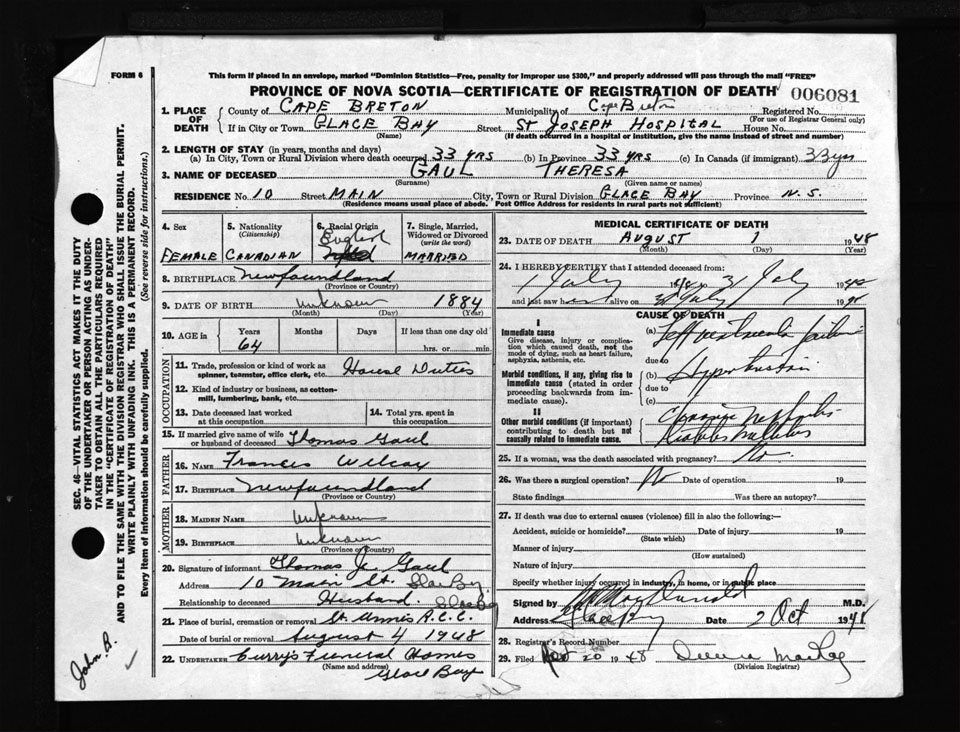 FORM 6
This form if placed in an envelope, marked "Dominion Statistics—Free, penalty for improper use $300," and properly addressed will pass through the mail "FREE"
PROVINCE OF NOVA SCOTIA—CERTIFICATE OF REGISTRATION OF DEATH 006081
1. PLACE OF DEATH
County of CAPE BRETON Municipality of Cape Breton Registered No.
(For use of Registrar General only)
If in City or Town GLACE BAY Street ST JOSEPH HOSPITAL House No.
(Name) (If death occurred in a hospital or institution, give the name instead of street and number)
2. LENGTH OF STAY (in years, months and days)
(a) In City, Town or Rural Division where death occurred 33 YRS (b) In Province 33 YRS (c) In Canada (if immigrant) 33 yrs
3. NAME OF DECEASED GAUL THERESA
(Surname) (Given name or names)
RESIDENCE No. 10 Street MAIN City, Town or Rural Division GLACE BAY Province N.S.
(Residence means usual place of abode. Post Office Address for residents in rural parts not sufficient)
4. Sex
FEMALE
5. Nationality
(Citizenship)
CANADIAN
6. Racial Origin
English
7. Single, Married, Widowed or Divorced
(write the word)
MARRIED
8. BIRTHPLACE Newfoundland
(Province or Country)
9. DATE OF BIRTH unknown 1884
(Month) (Day) (Year)
10. AGE in Years Months Days If less than one day old
64 hrs. or min.
OCCUPATION
11. Trade, profession or kind of work as spinner, teamster, office clerk, etc. House Duties
12. Kind of industry or business, as cotton-mill, lumbering, bank, etc.
13. Date deceased last worked at this occupation
14. Total yrs. spent in this occupation
15. If married give name of wife or husband of deceased Thomas Gaul
FATHER
16. NAME Francis Wilcox
17. BIRTHPLACE Newfoundland
(Province or Country)
MOTHER
18. MAIDEN NAME Unknown
19. BIRTHPLACE Unknown
(Province or Country)
20. Signature of informant Thomas J. Gaul
Address 10 Main St. Glace Bay
Relationship to deceased Husband Glace Bay
21. Place of burial, cremation or removal St. Annes R.C.C.
Date of burial or removal August 4 1948
22. UNDERTAKER Curry's Funeral Homes
(Name and address)
Glace Bay
MEDICAL CERTIFICATE OF DEATH
23. DATE OF DEATH AUGUST 1 1948
(Month) (Day) (Year)
24. I HEREBY CERTIFY that I attended deceased from:
1 July 1948 to 31 July 1948
and last saw her alive on 31 July 19
CAUSE OF DEATH
I
Immediate cause
Give disease, injury or complication which caused death, not the mode of dying, such as heart failure, asphyxia, asthenia, etc.
(a) Left ventricular failure
due to
Morbid conditions, if any, giving rise to immediate cause (stated in order proceeding backwards from immediate cause).
(b) Hypertension
due to
(c)
II
Other morbid conditions (if important) contributing to death but not causally related to immediate cause.
Chronic Nephritis
Diabetes Mellitus
25. If a woman, was the death associated with pregnancy? No.
26. Was there a surgical operation? No Date of operation 19
State findings Was there an autopsy?
27. If death was due to external causes (violence) fill in also the following:—
Accident, suicide or homicide? Date of injury 19
(State which)
Manner of injury
(How sustained)
Nature of injury
Specify whether injury occurred in industry, in home, or in public place
Signed by M.D.
Address Glace Bay Date 2 Oct 1948
28. Registrar's Record Number
29. Filed 20 1948 MacKay
(Division Registrar)
SEC. 46—VITAL STATISTICS ACT MAKES IT THE DUTY
OF THE UNDERTAKER OR PERSON ACTING AS UNDERTAKER TO OBTAIN ALL THE PARTICULARS REQUIRED
IN THE "CERTIFICATE OF REGISTRATION OF DEATH"
AND TO FILE THE SAME WITH THE DIVISION REGISTRAR WHO SHALL ISSUE THE BURIAL PERMIT.
WRITE PLAINLY WITH UNFADING INK. THIS IS A PERMANENT RECORD.
Every item of information should be carefully supplied. (See reverse side for instructions.)
John B.